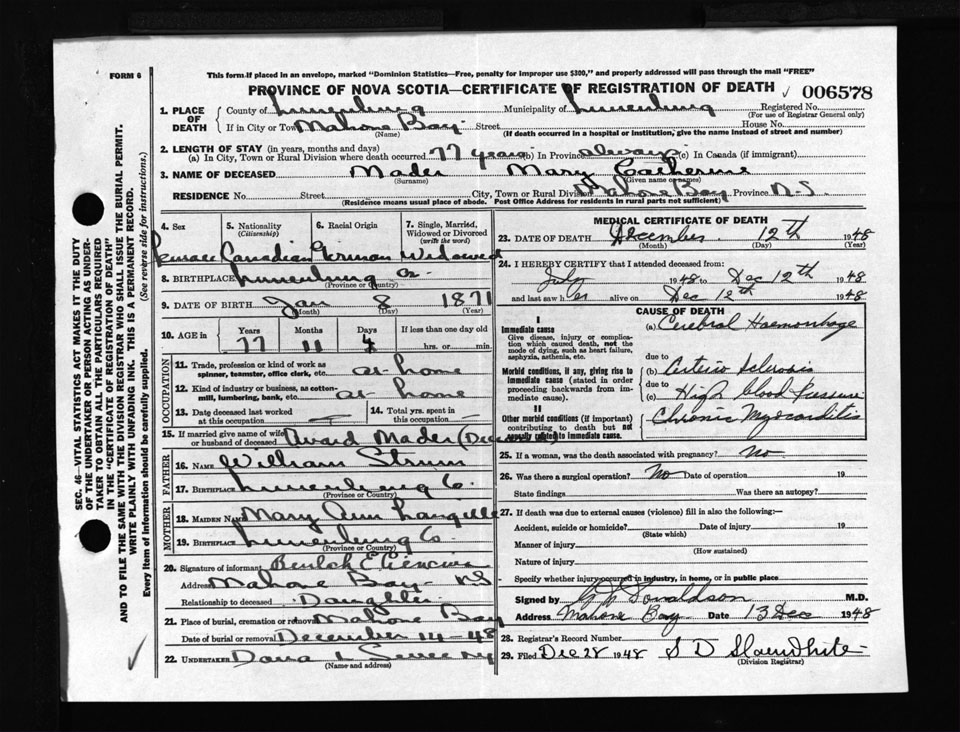 FORM 6
This form if placed in an envelope, marked "Dominion Statistics—Free, penalty for improper use $300," and properly addressed will pass through the mail "FREE"
PROVINCE OF NOVA SCOTIA—CERTIFICATE OF REGISTRATION OF DEATH 006578
1. PLACE OF DEATH County of Lunenburg Municipality of Lunenburg Registered No. (For use of Registrar General only)
If in City or Town Mahone Bay (Name) Street House No.
(If death occurred in a hospital or institution, give the name instead of street and number)
2. LENGTH OF STAY (in years, months and days)
(a) In City, Town or Rural Division where death occurred 77 years (b) In Province always (c) In Canada (if immigrant)
3. NAME OF DECEASED Mader (Surname) Mary Catherine (Given name or names)
RESIDENCE No. Street City, Town or Rural Division Mahone Bay Province N.S.
(Residence means usual place of abode. Post Office Address for residents in rural parts not sufficient)
4. Sex 5. Nationality (Citizenship) 6. Racial Origin 7. Single, Married, Widowed or Divorced (write the word)
Female Canadian German Widowed
8. BIRTHPLACE Lunenburg Co. (Province or Country)
9. DATE OF BIRTH Jan (Month) 8 (Day) 1871 (Year)
10. AGE in Years Months Days If less than one day old
77 11 4 hrs. or min.
OCCUPATION
11. Trade, profession or kind of work as spinner, teamster, office clerk, etc. at home
12. Kind of industry or business, as cotton-mill, lumbering, bank, etc. at home
13. Date deceased last worked at this occupation 14. Total yrs. spent in this occupation
15. If married give name of wife or husband of deceased Avard Mader
FATHER
16. NAME William Strum
17. BIRTHPLACE Lunenburg Co. (Province or Country)
MOTHER
18. MAIDEN NAME Mary Ann Langille
19. BIRTHPLACE Lunenburg Co. (Province or Country)
20. Signature of informant Beulah E
Address Mahone Bay NS
Relationship to deceased Daughter
21. Place of burial, cremation or removal Mahone Bay
Date of burial or removal December 14-48
22. UNDERTAKER Dana L (Name and address)
MEDICAL CERTIFICATE OF DEATH
23. DATE OF DEATH December (Month) 12th (Day) 1948 (Year)
24. I HEREBY CERTIFY that I attended deceased from:
July 1948 to Dec 12th 1948
and last saw her alive on Dec 12th 1948
CAUSE OF DEATH
I
Immediate cause
Give disease, injury or complication which caused death, not the mode of dying, such as heart failure, asphyxia, asthenia, etc.
(a) Cerebral Haemorrhage
due to
Morbid conditions, if any, giving rise to immediate cause (stated in order proceeding backwards from immediate cause).
(b) Arterio Sclerosis
due to
(c) High blood Pressure
II
Other morbid conditions (if important) contributing to death but not causally related to immediate cause.
Chronic Myocarditis
25. If a woman, was the death associated with pregnancy? No
26. Was there a surgical operation? No Date of operation 19
State findings Was there an autopsy?
27. If death was due to external causes (violence) fill in also the following:—
Accident, suicide or homicide? (State which) Date of injury 19
Manner of injury (How sustained)
Nature of injury
Specify whether injury occurred in industry, in home, or in public place
Signed by Donaldson M.D.
Address Mahone Bay Date 13 Dec 1948
28. Registrar's Record Number
29. Filed Dec 28 1948 S D Slaunwhite (Division Registrar)
SEC. 46—VITAL STATISTICS ACT MAKES IT THE DUTY
OF THE UNDERTAKER OR PERSON ACTING AS UNDER-
TAKER TO OBTAIN ALL THE PARTICULARS REQUIRED
IN THE "CERTIFICATE OF REGISTRATION OF DEATH"
AND TO FILE THE SAME WITH THE DIVISION REGISTRAR WHO SHALL ISSUE THE BURIAL PERMIT.
WRITE PLAINLY WITH UNFADING INK. THIS IS A PERMANENT RECORD.
Every item of information should be carefully supplied. (See reverse side for instructions.)